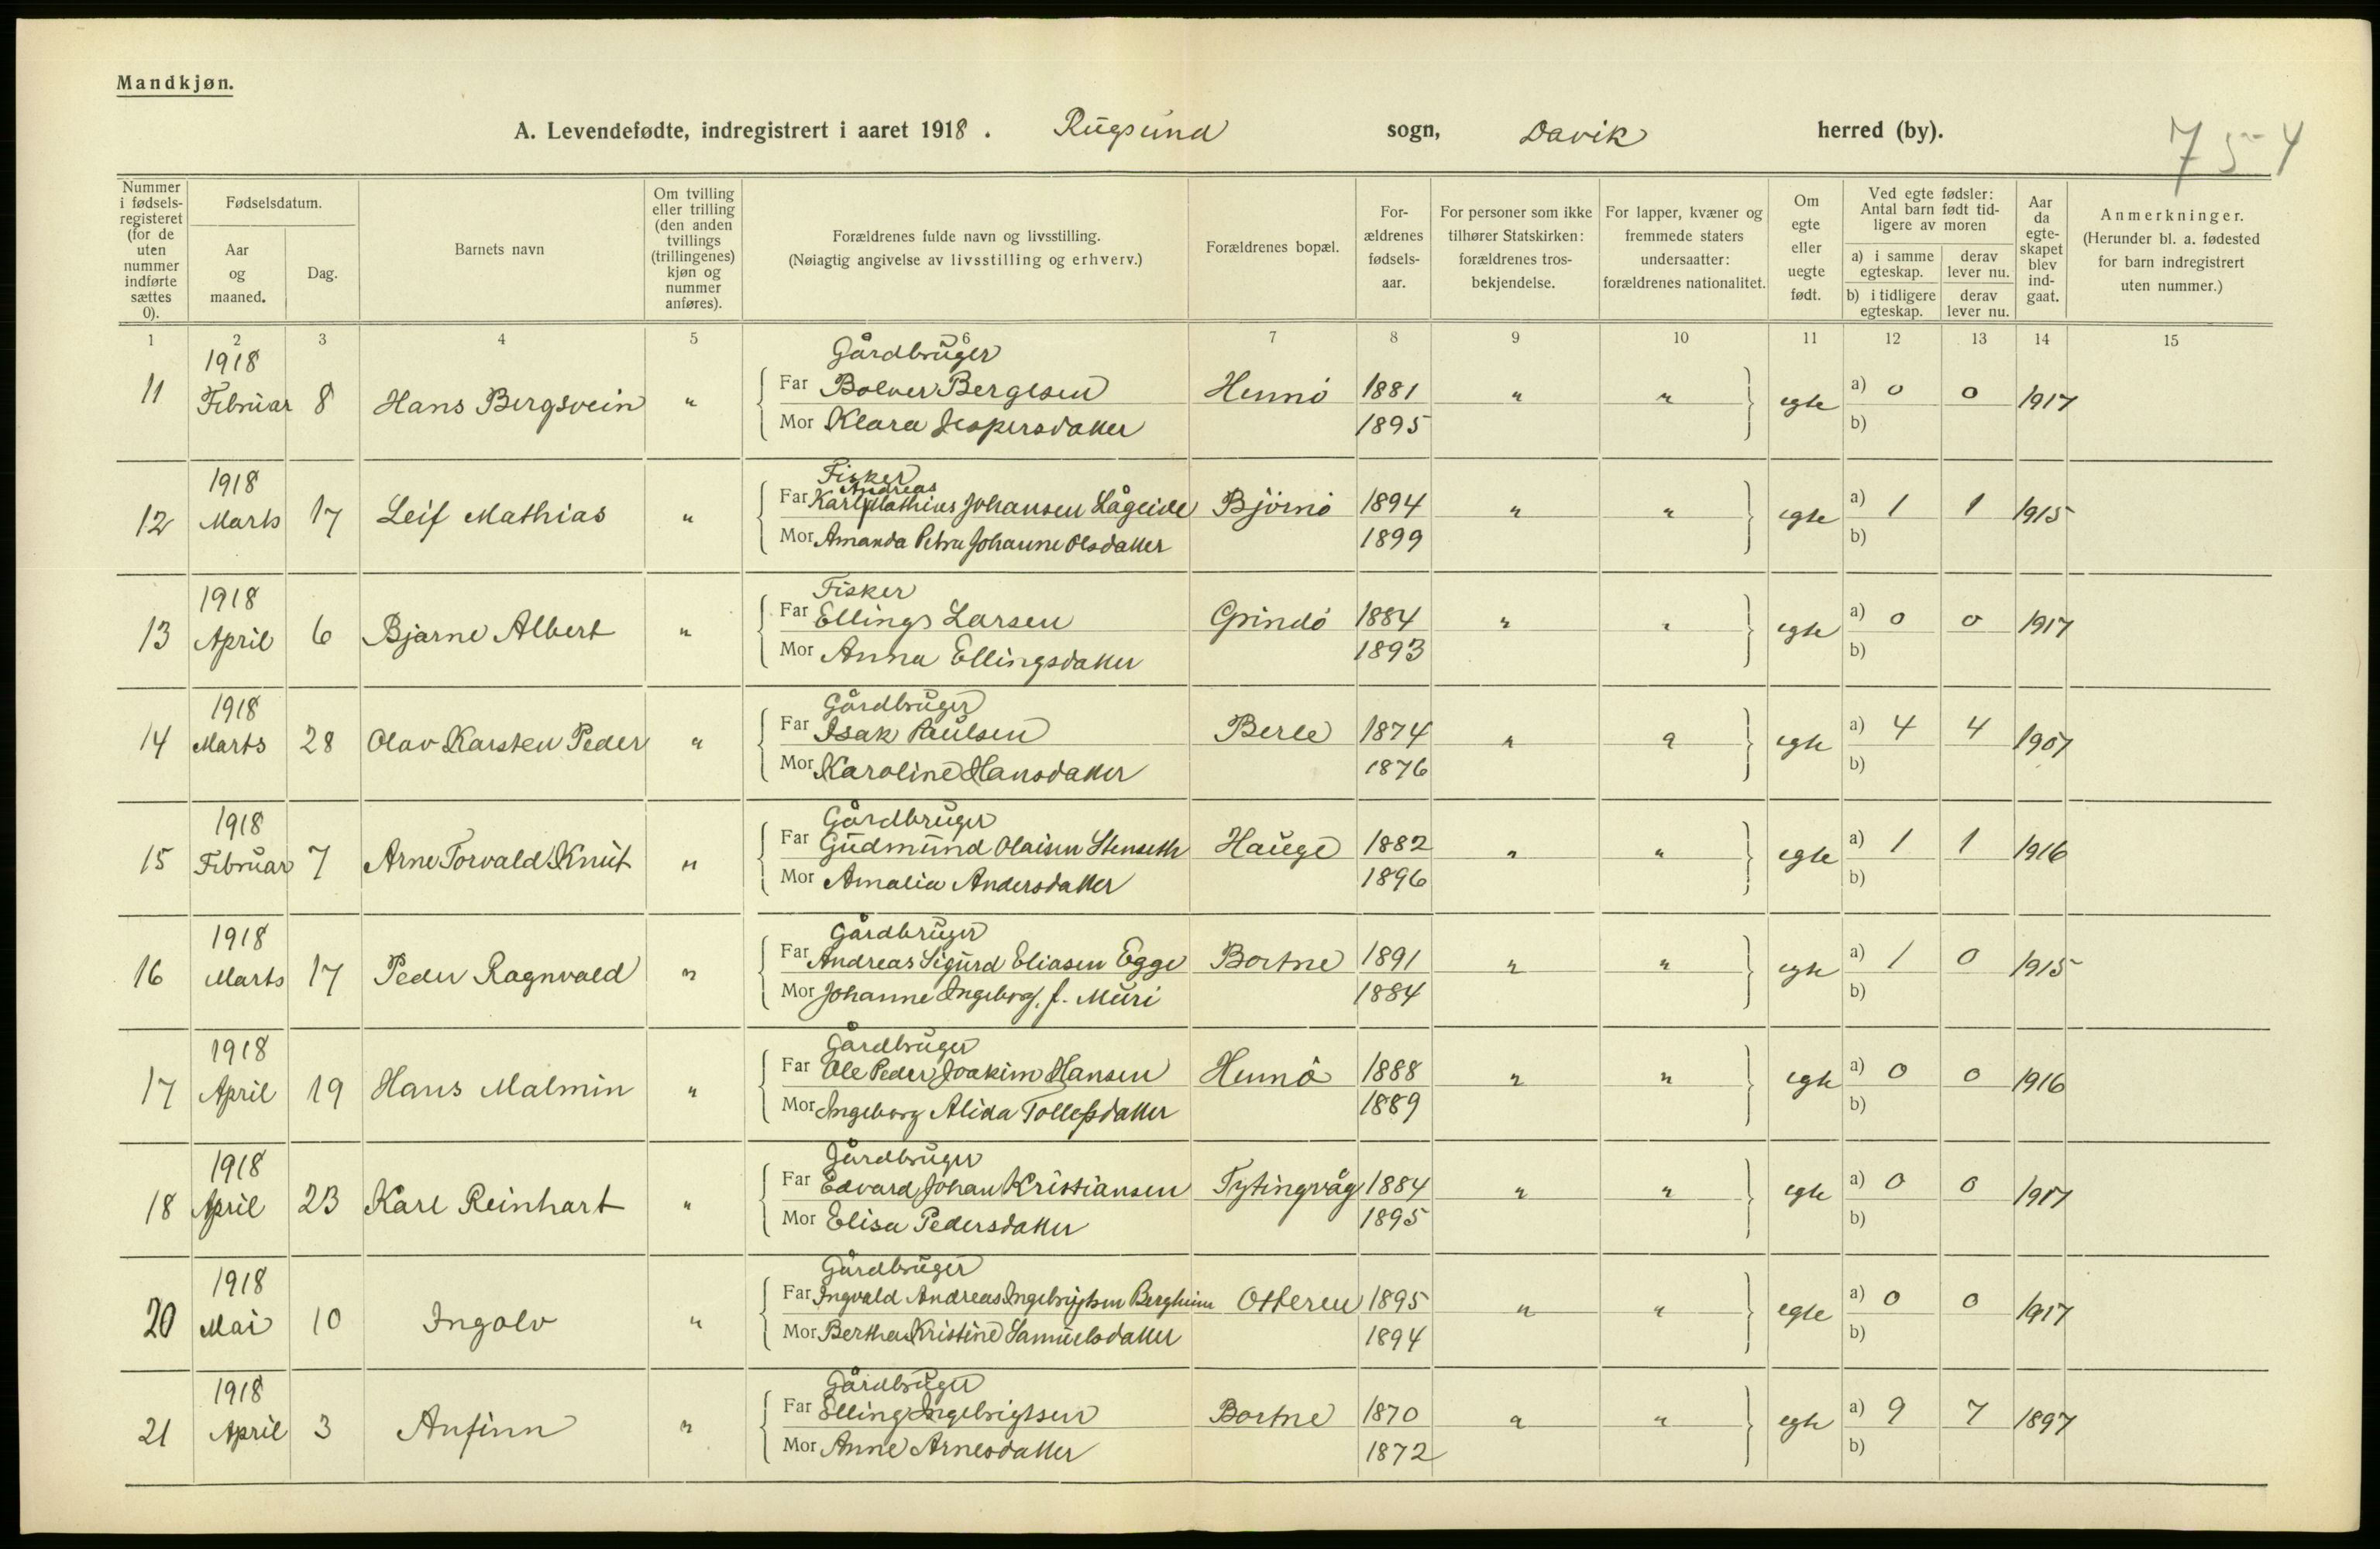 Mandkjøn.
A. Levendefødte, indregistrert i aaret 1918. Rugsund sogn, Davik herred (by).
754
Nummer i fødsels-registeret (for de uten nummer indførte sættes 0).
Fødselsdatum.
Aar og maaned.
Dag.
Barnets navn
Om tvilling eller trilling (den anden tvillings (trillingenes) kjøn og nummer anføres).
Forældrenes fulde navn og livsstilling.
(Nøiagtig angivelse av livsstilling og erhverv.)
Forældrenes bopæl.
For-ældrenes fødsels-aar.
For personer som ikke tilhører Statskirken: forældrenes tros-bekjendelse.
For lapper, kvæner og fremmede staters undersaatter: forældrenes nationalitet.
Om egte eller uegte født.
Ved egte fødsler: Antal barn født tid-ligere av moren
a) i samme egteskap. derav lever nu.
b) i tidligere egteskap. derav lever nu.
Aar da egte-skapet blev ind-gaat.
Anmerkninger.
(Herunder bl. a. fødested for barn indregistrert uten nummer.)
1 2 3 4 5 6 7 8 9 10 11 12 13 14 15
1918 Gårdbruger
11 Februar 8 Hans Bergsvein " Far Bolver Bergesen Hennö 1881 " " egte a) 0 0 1917
Mor Klara Jespersdatter 1895 b)
1918 Fisker
Andreas
12 Marts 17 Leif Mathias " Far Karl Mathias Johansen Lågeide Björnö 1894 " " egte a) 1 1 1915
Mor Amanda Petra Johanne Olsdatter 1899 b)
1918 Fisker
13 April 6 Bjarne Albert " Far Ellings Larsen Grindö 1884 " " egte a) 0 0 1917
Mor Anna Ellingsdatter 1893 b)
1918 Gårdbruger
14 Marts 28 Olav Karsten Peder " Far Isak Paulsen Berle 1874 " " egte a) 4 4 1907
Mor Karoline Hansdatter 1876 b)
1918 Gårdbruger
15 Februar 7 Arne Torvald Knut " Far Gudmund Olaisen Stenseth Hauge 1882 " " egte a) 1 1 1916
Mor Amalia Andersdatter 1896 b)
1918 Gårdbruger
16 Marts 17 Peder Ragnvald " Far Andreas Sigurd Eliasen Egge Bortne 1891 " " egte a) 1 0 1915
Mor Johanne Ingeborg, f. Muri 1884 b)
1918 Gårdbruger
17 April 19 Hans Malmin " Far Ole Peder Joakim Hansen Hennö 1888 " " egte a) 0 0 1916
Mor Ingeborg Alida Tollefsdatter 1889 b)
1918 Gårdbruger
18 April 23 Karl Reinhart " Far Edvard Johan Kristiansen Tytingvåg 1884 " " egte a) 0 0 1917
Mor Elisa Pedersdatter 1895 b)
1918 Gårdbruger
20 Mai 10 Ingolv " Far Ingvald Andreas Ingebrigtsen Bergheim Otteren 1895 " " egte a) 0 0 1917
Mor Bertha Kristine Samuelsdatter 1894 b)
1918 Gårdbruger
21 April 3 Anfinn " Far Elling Ingebrigtsen Bortne 1870 " " egte a) 9 7 1897
Mor Anne Arnesdatter 1872 b)